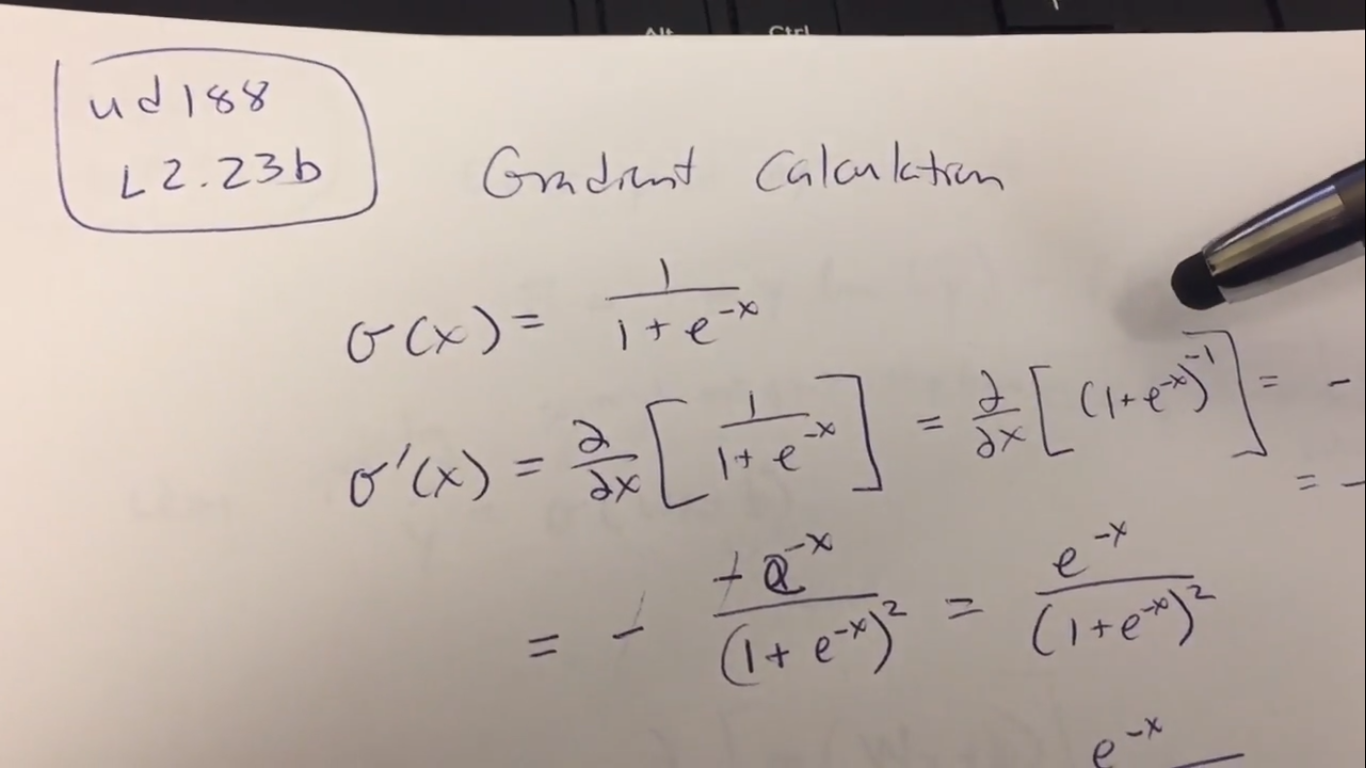 Alt Ctrl
ud188
L2.23b
Gradient Calculation
σ(x) = 1 / (1 + e^{-x})
σ'(x) = ∂/∂x [ 1 / (1 + e^{-x}) ] = ∂/∂x [ (1 + e^{-x})^{-1} ] = -
= -
= - e^{-x} / (1 + e^{-x})^2 = e^{-x} / (1 + e^{-x})^2
e^{-x}